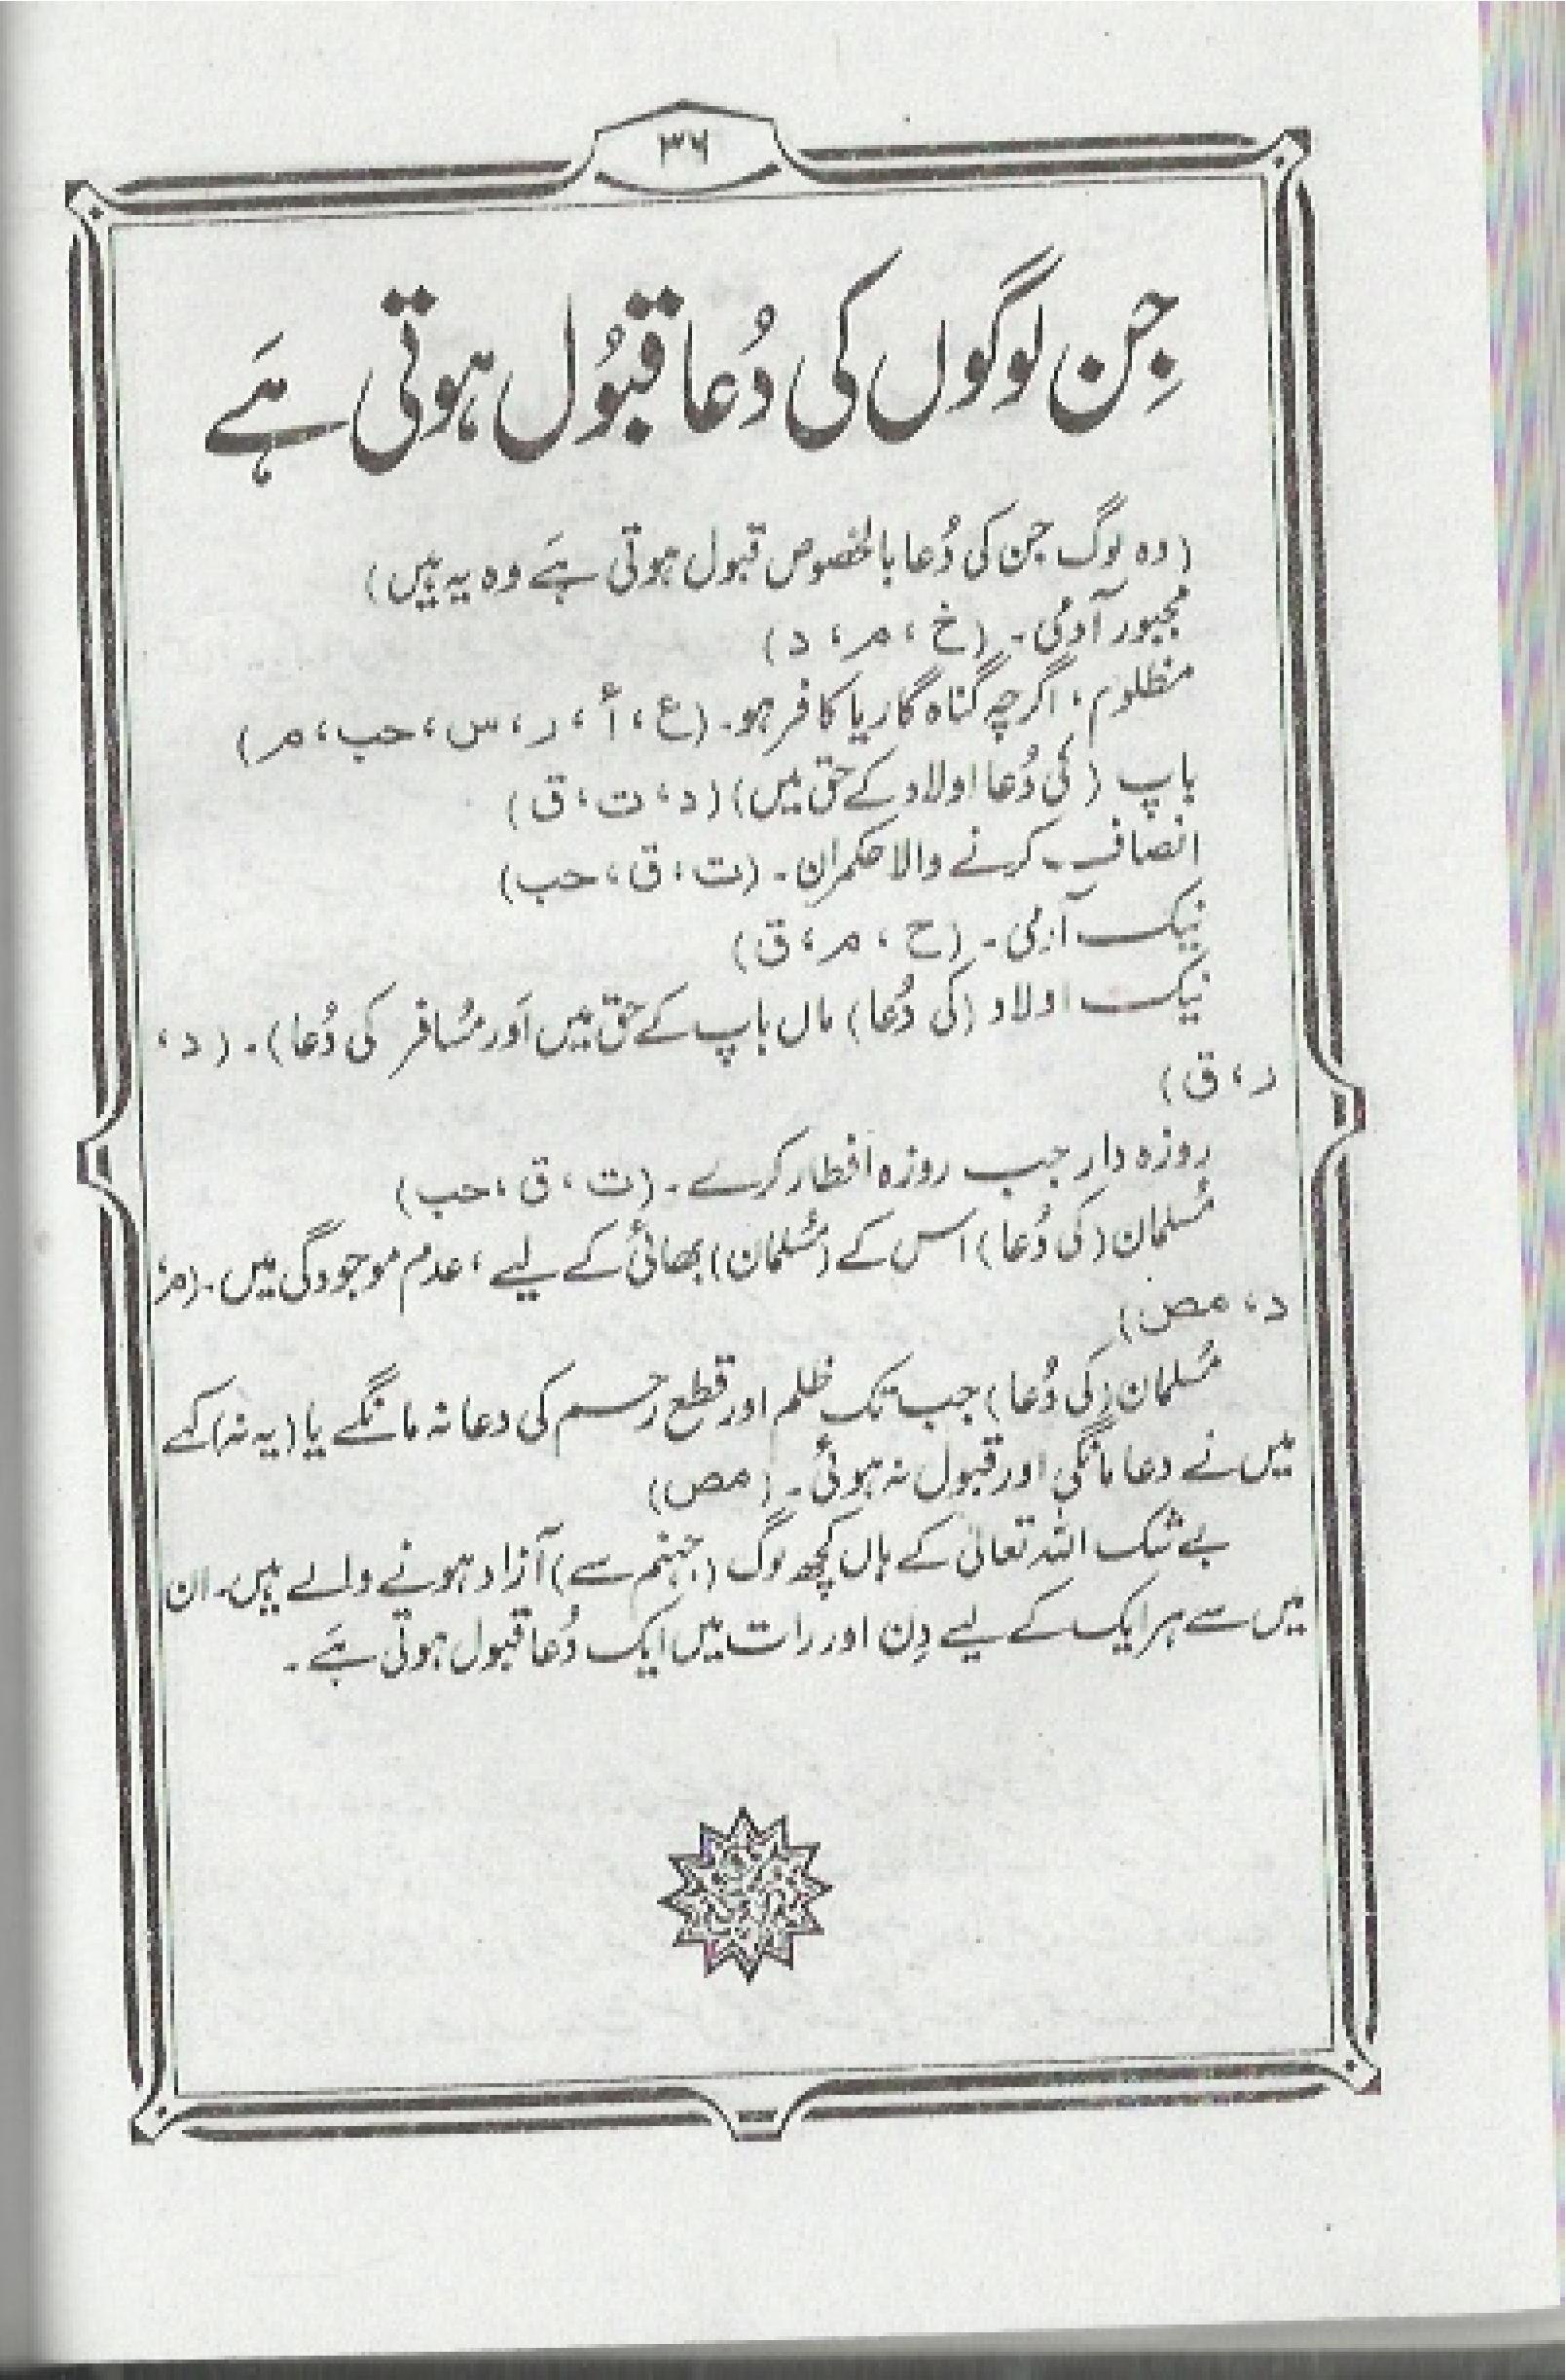 ۳۶
جِن لوگوں کی دُعا قبُول ہوتی ہَے
(وہ لوگ جن کی دُعا بالخصوص قبول ہوتی ہَے وہ یہ ہیں)
مجبور آدمی۔ (خ ، م ، د)
مظلوم ، اگرچہ گناہ گار یا کافر ہو۔ (ع ، أ ، ر ، س ، حب ، م)
باپ (کی دُعا اولاد کے حق میں) (د ، ت ، ق)
انصاف کرنے والا حکمران۔ (ت ، ق ، حب)
نیک آدمی۔ (ح ، م ، ق)
نیک اولاد (کی دُعا) ماں باپ کے حق میں اَور مُسافر کی دُعا)۔ (د ،
ر ، ق)
روزہ دار جب روزہ افطار کرے۔ (ت ، ق ، حب)
مُسلمان (کی دُعا) اس کے (مُسلمان) بھائی کے لیے ، عدم موجودگی میں۔ (م ،
د ، مص)
مُسلمان (کی دُعا) جب تک ظلم اور قطع رحم کی دعا نہ مانگے یا (یہ نہ) کہے
میں نے دعا مانگی اور قبول نہ ہوئی۔ (مص)
بے شک اللہ تعالیٰ کے ہاں کچھ لوگ (جہنم سے) آزاد ہونے والے ہیں۔ ان
میں سے ہر ایک کے لیے دِن اور رات میں ایک دُعا قبول ہوتی ہَے۔